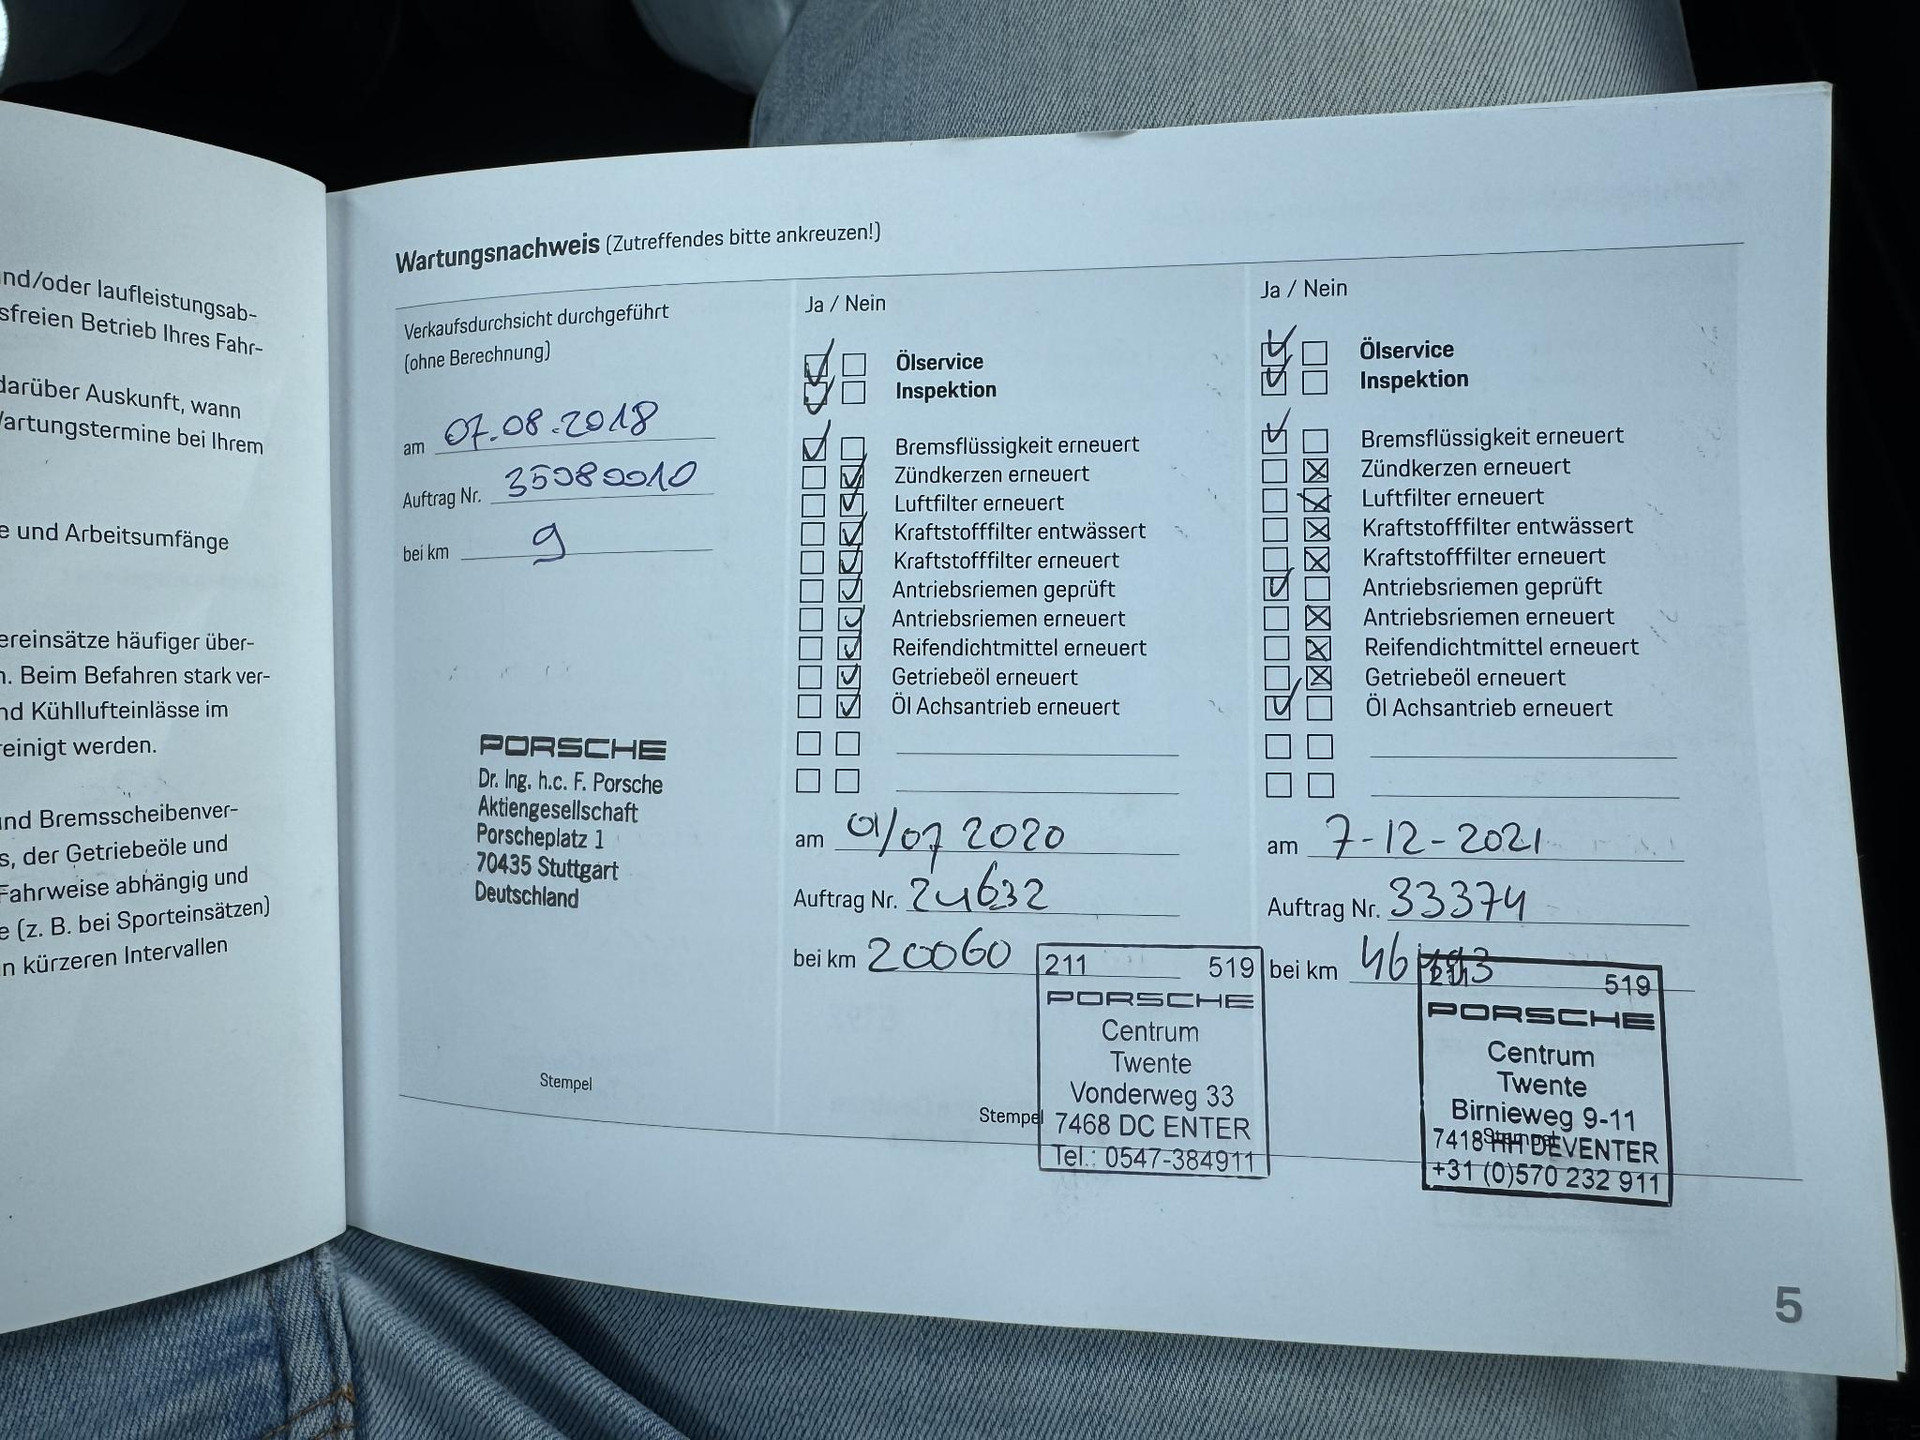 nd/oder laufleistungsab-
sfreien Betrieb Ihres Fahr-
darüber Auskunft, wann
Wartungstermine bei Ihrem
e und Arbeitsumfänge
ereinsätze häufiger über-
n. Beim Befahren stark ver-
nd Kühllufteinlässe im
reinigt werden.
und Bremsscheibenver-
s, der Getriebeöle und
Fahrweise abhängig und
e (z. B. bei Sporteinsätzen)
n kürzeren Intervallen
Wartungsnachweis (Zutreffendes bitte ankreuzen!)
Verkaufsdurchsicht durchgeführt
(ohne Berechnung)
am 07.08.2018
Auftrag Nr. 35080010
bei km 9
PORSCHE
Dr. Ing. h.c. F. Porsche
Aktiengesellschaft
Porscheplatz 1
70435 Stuttgart
Deutschland
Stempel
Ja / Nein
Ölservice
Inspektion
Bremsflüssigkeit erneuert
Zündkerzen erneuert
Luftfilter erneuert
Kraftstofffilter entwässert
Kraftstofffilter erneuert
Antriebsriemen geprüft
Antriebsriemen erneuert
Reifendichtmittel erneuert
Getriebeöl erneuert
Öl Achsantrieb erneuert
am 01/07 2020
Auftrag Nr. 24632
bei km 20060
211 519
PORSCHE
Centrum
Twente
Vonderweg 33
7468 DC ENTER
Tel.: 0547-384911
Stempel
Ja / Nein
Ölservice
Inspektion
Bremsflüssigkeit erneuert
Zündkerzen erneuert
Luftfilter erneuert
Kraftstofffilter entwässert
Kraftstofffilter erneuert
Antriebsriemen geprüft
Antriebsriemen erneuert
Reifendichtmittel erneuert
Getriebeöl erneuert
Öl Achsantrieb erneuert
am 7-12-2021
Auftrag Nr. 33374
bei km
519
PORSCHE
Centrum
Twente
Birnieweg 9-11
7418 HH DEVENTER
+31 (0)570 232 911
Stempel
5